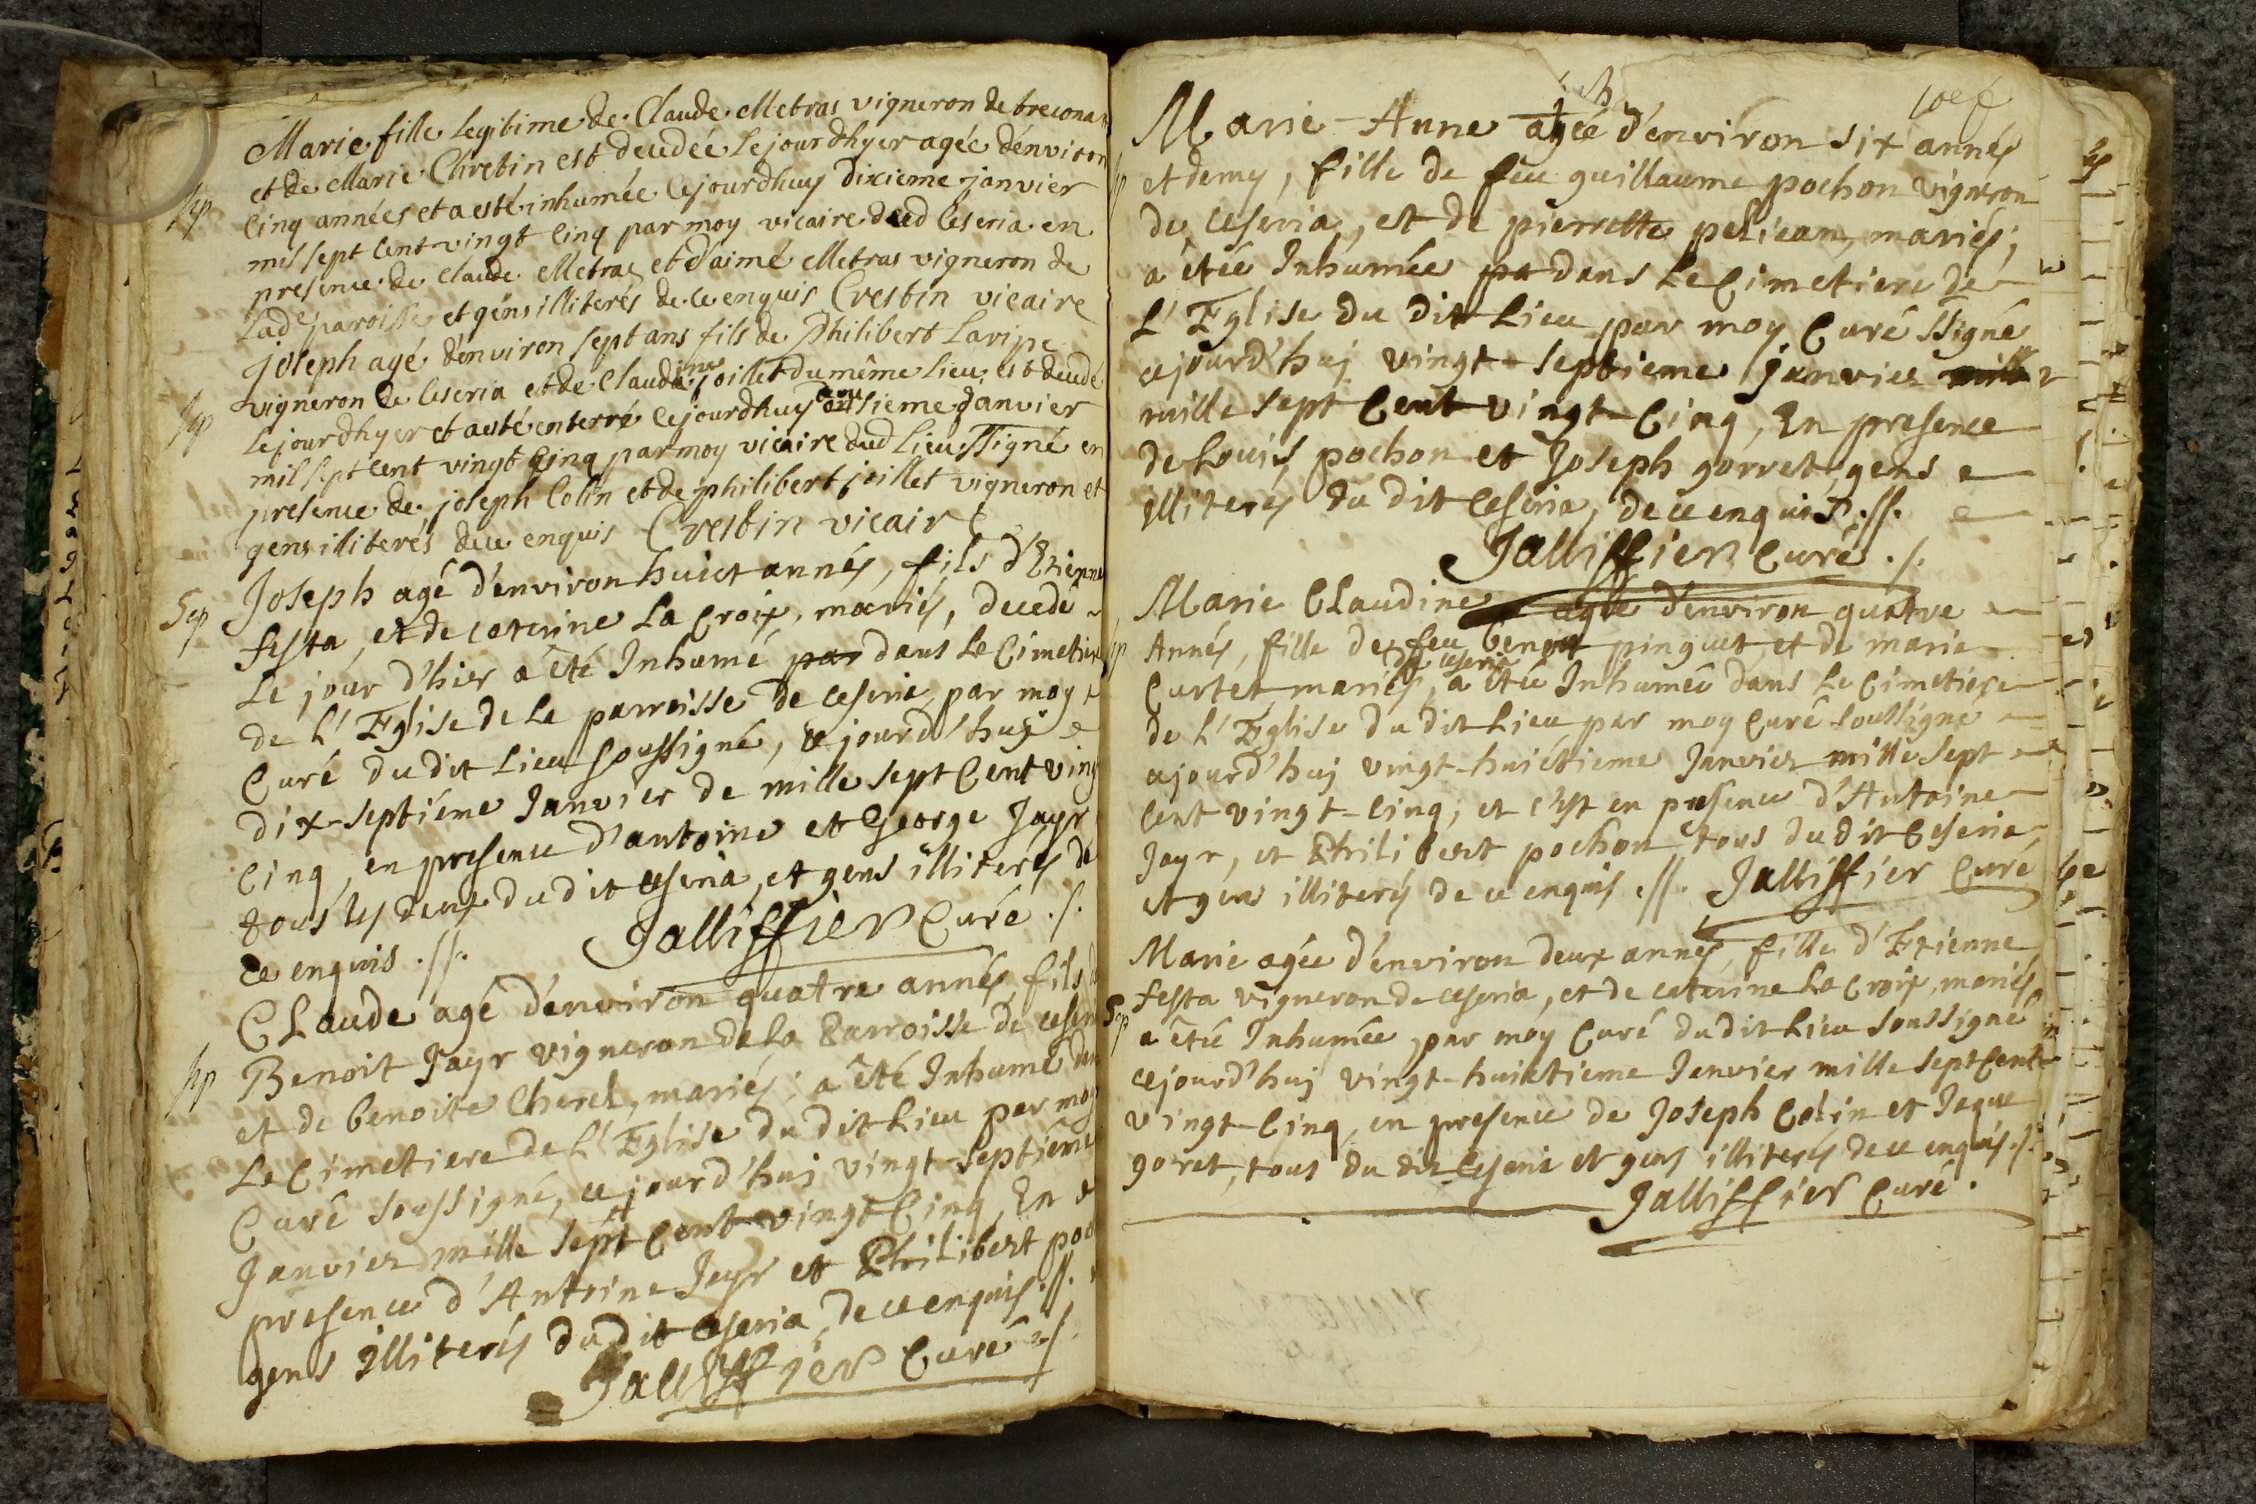 Marie fille legitime de Claude Metras vigneron de treconas
et de Marie Chrebin est decedée le jour dhyer agée d'environ
Sep
cinq années et a esté inhumée ce jourdhuy dixieme janvier
mil sept cent vingt cinq par moy vicaire dud Ceseria en
presence de Claude Metras et d'aimé Metras vigneron de
lad paroisse et gens illiterés de ce enquis Crestin vicaire
joseph agé d'environ sept ans fils de Philibert Laripe
vigneron de Ceseria et de Claudine joillet du même lieu est decedé
Sep
le jour dhyer et a esté enterré ce jourdhuy onsieme janvier
mil sept cent vingt cinq par moy vicaire dud lieu ssigné en
presence de joseph Colin et de philibert joillet vigneron et
gens illiterés de ce enquis Crestin vicaire
Joseph agé d'environ huict annés, fils d'Etienne
Sep
festa, et de caterine La Croix, mariés, decedé
Le jour d'hier a été Inhumé par dans Le Cimetiere
de L'Eglise de La parroisse de ceseria, par moy
Curé du dit Lieu soussigné, ce jourd'huj
dix-septiéme Janvier de mille sept Cent ving
Cinq, en presence d'antoine et George Jayr
tous les deux du dit ceseria, et gens illiterés de
ce enquis .//.
Jalliffier Curé ./.
CLaude agé d'environ quatre annés, fils de
Sep
Benoit Jayr vigneron de La Parroisse de ceseria
et de benoite Cherel, mariés; a été Inhumé dans
Le Cimetiere de L'Eglise du dit Lieu par moy
Curé soussigné, ce jourd'huj vingt-septiéme
Janvier mille sept Cent vingt Cinq, En
presence d'Antoine Jayr et Philibert poc
gens illiterés du dit ceseria, de ce enquis .//.
Jalliffier Curé ./.
Marie-Anne agée d'environ six annés
Sep
et demy, fille de feu guillaume pochon vigneron
de ceseria, et de pierrette pelican, mariés;
a étée Inhumée pa dans Le Cimetiere de
L'Eglise du dit Lieu par moy Curé ssigné
cejourd'huj vingt-septieme janvier mille
mille sept Cent vingt-Cinq, En presence
de Louis pochon et Joseph gorret, gens
illiterés du dit Ceseria, de ce enquis .//.
Jalliffier Curé ./.
Marie CLaudine agée d'environ quatre
Sep
Annés, fille de feu benoit pinguet, et de marie
de ceseria
Curtet mariés, a étée Inhumée dans Le Cimetiere
de L'Eglise du dit Lieu, par moy Curé soussigné
cejourd'huj vingt-huictieme Janvier mille sept
Cent vingt-Cinq, et c'est en presence d'Antoine
Jayr, et Philibert pochon tous du dit Ceseria,
et gens illiterés de ce enquis .//. Jalliffier Curé
Marie agée d'environ deux annés, fille d'Etienne
festa vigneron de ceseria, et de caterine La Croix, mariés
Sep
a étée Inhumée par moy Curé du dit Lieu soussigné
cejourd'huj vingt-huictieme Janvier mille sept Cent
vingt-Cinq, en presence de Joseph Colin et Jaque
goret, tous du dit Ceseria et gens illiterés de ce enquis ./.
Jalliffier Curé.